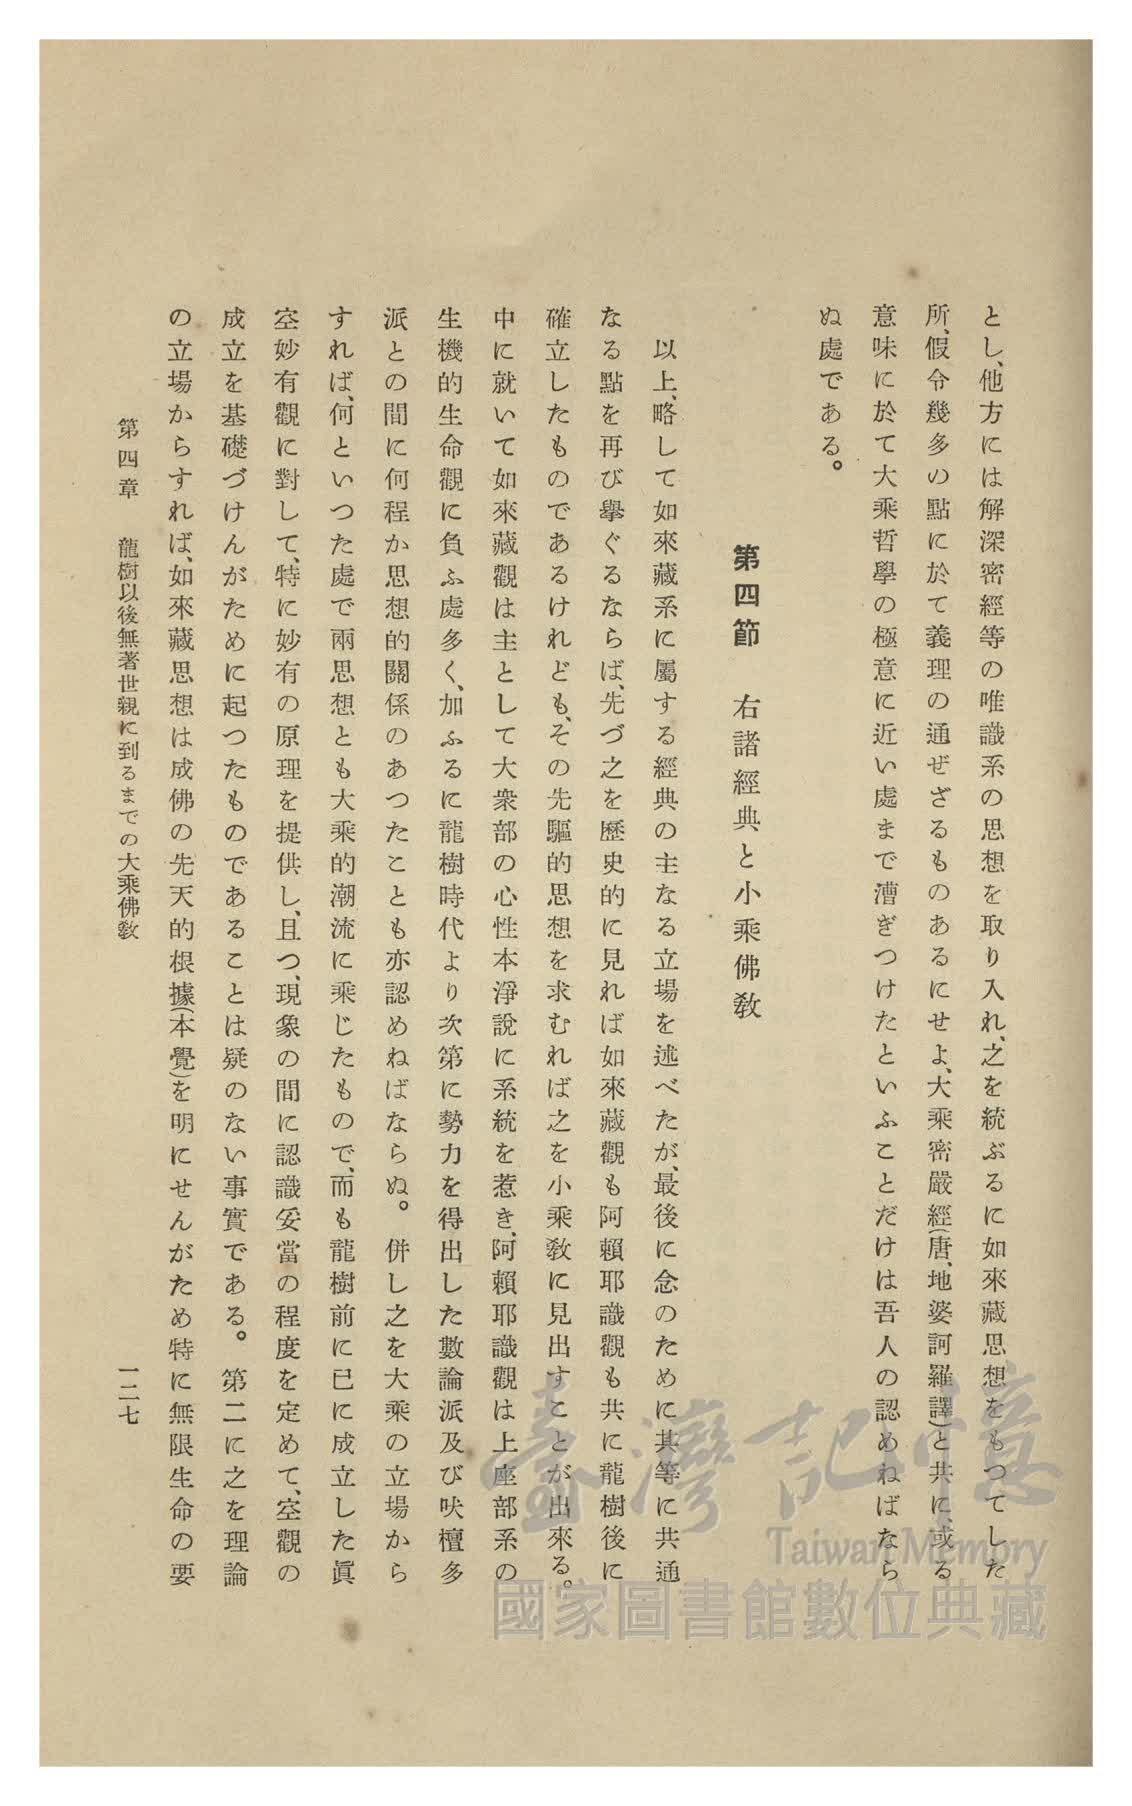 とし、他方には解深密經等の唯識系の思想を取り入れ、之を統ぶるに如來藏思想をもつてした
所、假令幾多の點に於て義理の通ぜざるものあるにせよ、大乘密嚴經(唐、地婆訶羅譯)と共に、或る
意味に於て大乘哲學の極意に近い處まで漕ぎつけたといふことだけは吾人の認めねばなら
ぬ處である。
第四節　右諸經典と小乘佛敎
以上、略して如來藏系に屬する經典の主なる立場を述べたが、最後に念のために其等に共通
なる點を再び擧ぐるならば、先づ之を歷史的に見れば如來藏觀も阿賴耶識觀も共に龍樹後に
確立したものであるけれども、その先驅的思想を求むれば之を小乘敎に見出すことが出來る。
中に就いて如來藏觀は主として大衆部の心性本淨說に系統を惹き、阿賴耶識觀は上座部系の
生機的生命觀に負ふ處多く、加ふるに龍樹時代より次第に勢力を得出した數論派及び吠檀多
派との間に何程か思想的關係のあつたことも亦認めねばならぬ。併し之を大乘の立場から
すれば、何といつた處で兩思想とも大乘的潮流に乘じたもので、而も龍樹前に已に成立した眞
空妙有觀に對して、特に妙有の原理を提供し、且つ、現象の間に認識妥當の程度を定めて、空觀の
成立を基礎づけんがために起つたものであることは疑のない事實である。第二に之を理論
の立場からすれば、如來藏思想は成佛の先天的根據(本覺)を明にせんがため特に無限生命の要
第四章　龍樹以後無著世親に到るまでの大乘佛敎
一二七
臺灣記憶
Taiwan Memory
國家圖書館數位典藏